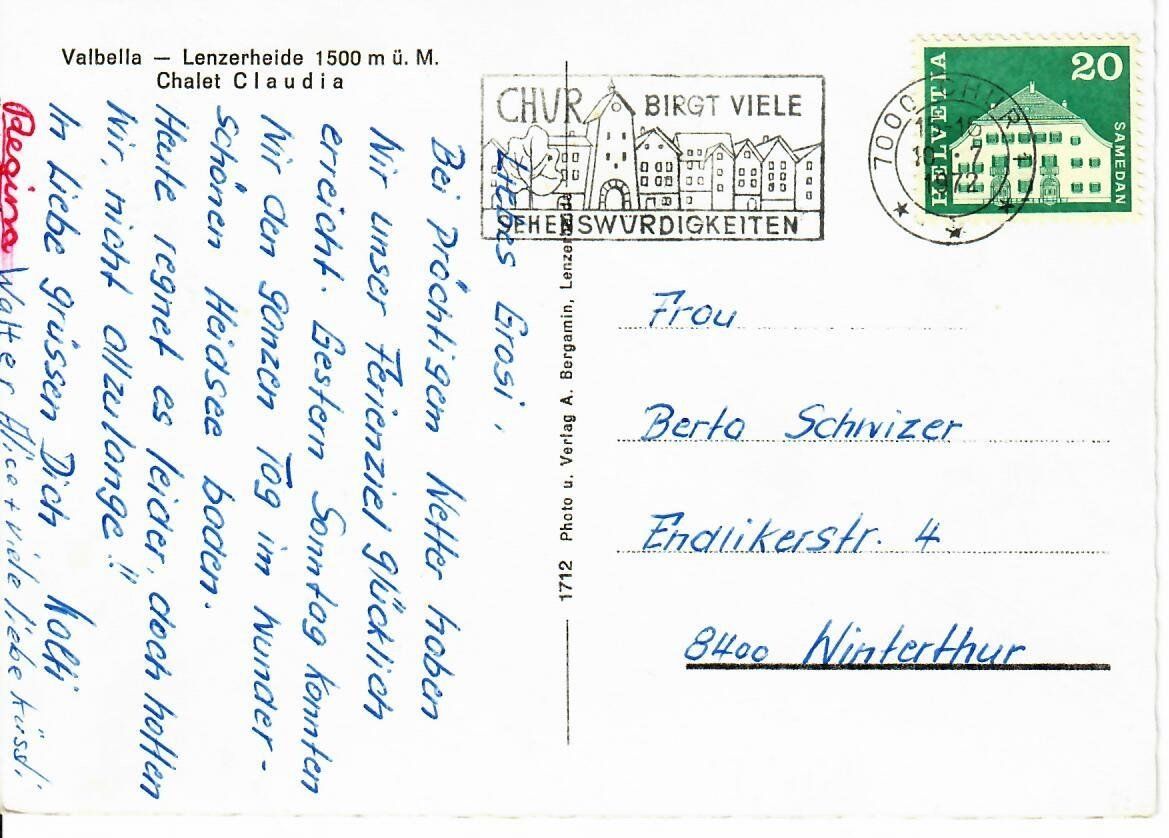 Valbella — Lenzerheide 1500 m ü. M.
Chalet Claudia
Liebes Grosi,
Bei prächtigem Wetter haben
Wir unser Ferienziel glücklich
erreicht. Gestern Sonntag konnten
Wir den ganzen Tag im Wunder-
schönen Heidsee baden.
Heute regnet es leider, doch hoffen
Wir, nicht allzulange!!
In Liebe grüssen Dich Wolfi
Regina Walter Alice + viele liebe Küssli
1712 Photo u. Verlag A. Bergamin, Lenzerheide
CHUR BIRGT VIELE
SEHENSWÜRDIGKEITEN
7000 CHUR 1
10.-7
1972
HELVETIA
20
SAMEDAN
Frau
Berta Schwizer
Endlikerstr. 4
8400 Winterthur